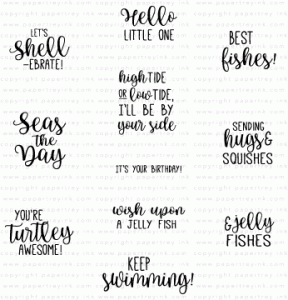 Hello
LITTLE ONE
LET'S
shell
-EBRATE!
BEST
fishes!
high TIDE
OR low TIDE,
I'LL BE BY
your side
Seas
the
Day
SENDING
hugs &
SQUISHES
IT'S YOUR BIRTHDAY!
YOU'RE
turtley
AWESOME!
wish upon
A JELLY FISH
& jelly
FISHES
KEEP
swimming!